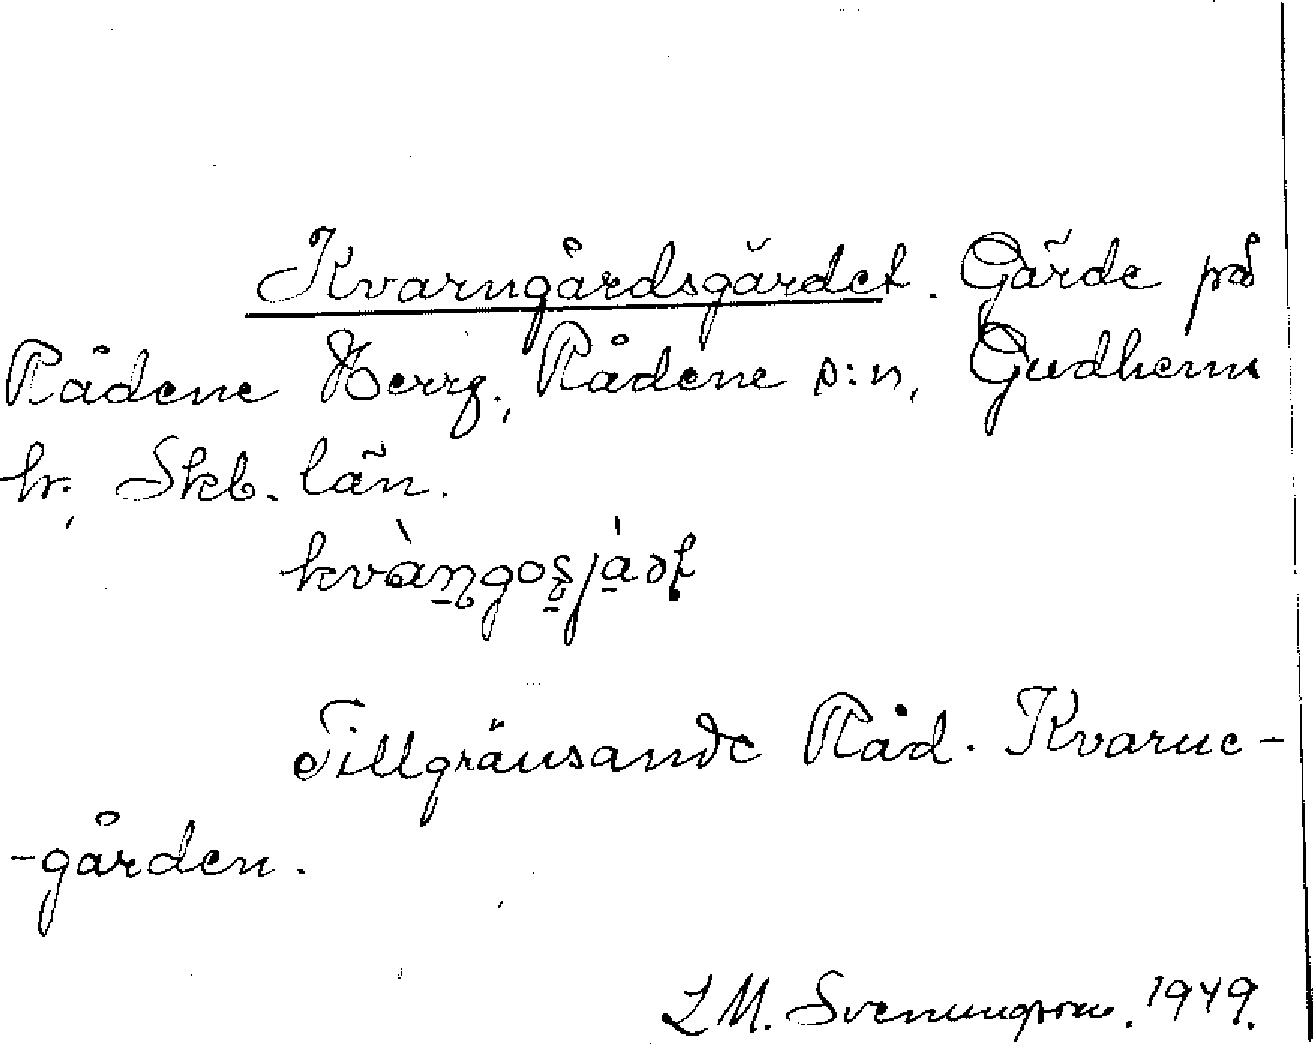 Kvarngårdsgärdet. Gärde på
Rådene Herrg., Rådene s:n, Gudhems
hr., Skb. län.
kvàṉgoṣjá̱ət
Tillgränsande Råd. Kvarne-
-gården.
L M. Svenungsson. 1949.